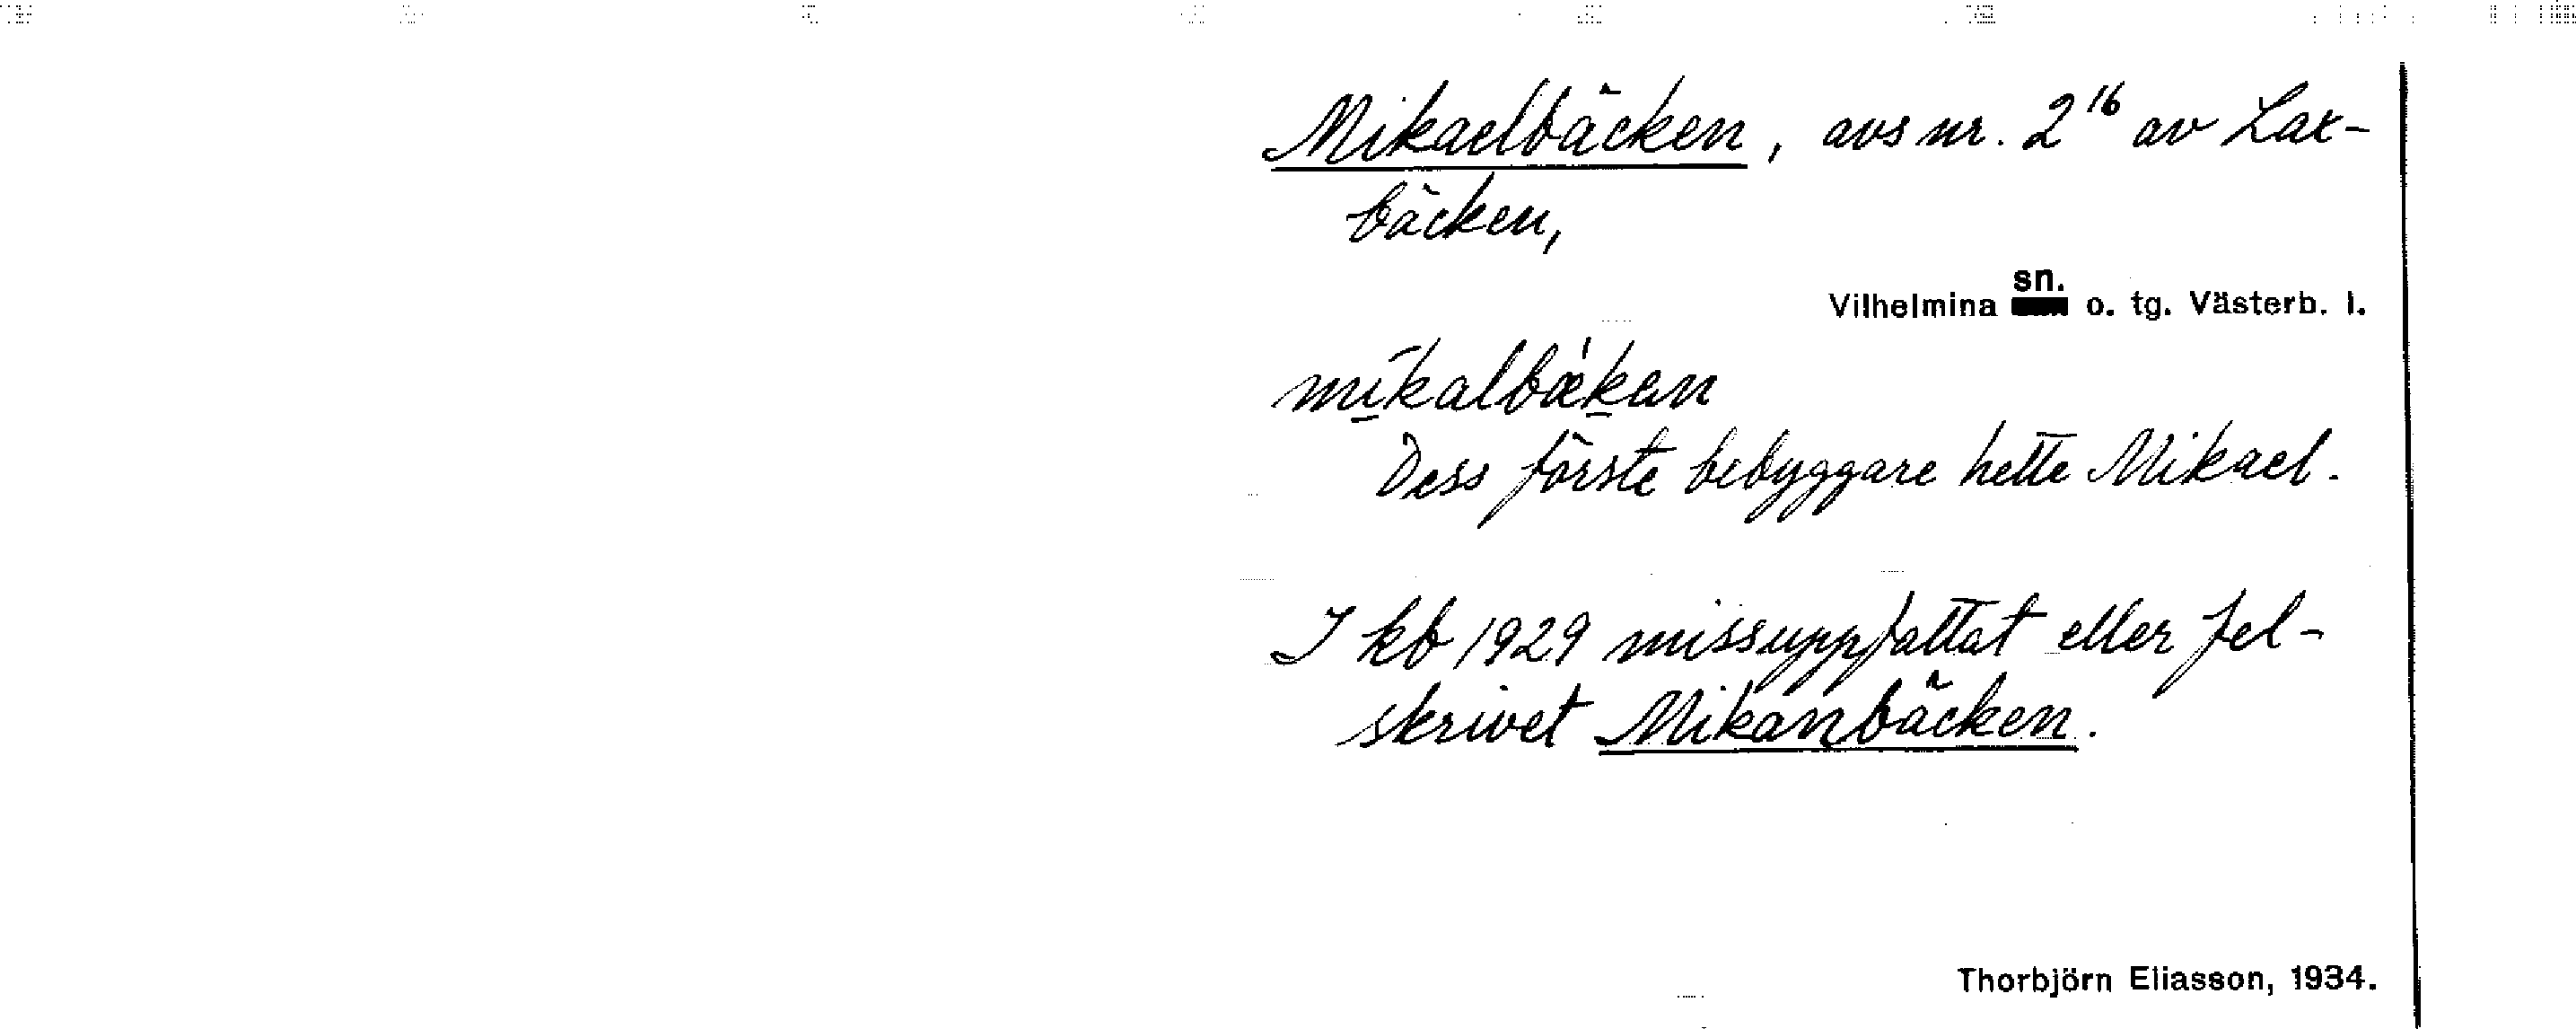 Mikaelbäcken, avs nr. 2¹⁶ av Lax-
bäcken,
Vilhelmina sn. o. tg. Västerb. l.
mikalbækan
Dess förste bebyggare hette Mikael.
I kb 1929 missuppfattat eller fel-
skrivet Mikanbäcken.
Thorbjörn Eliasson, 1934.